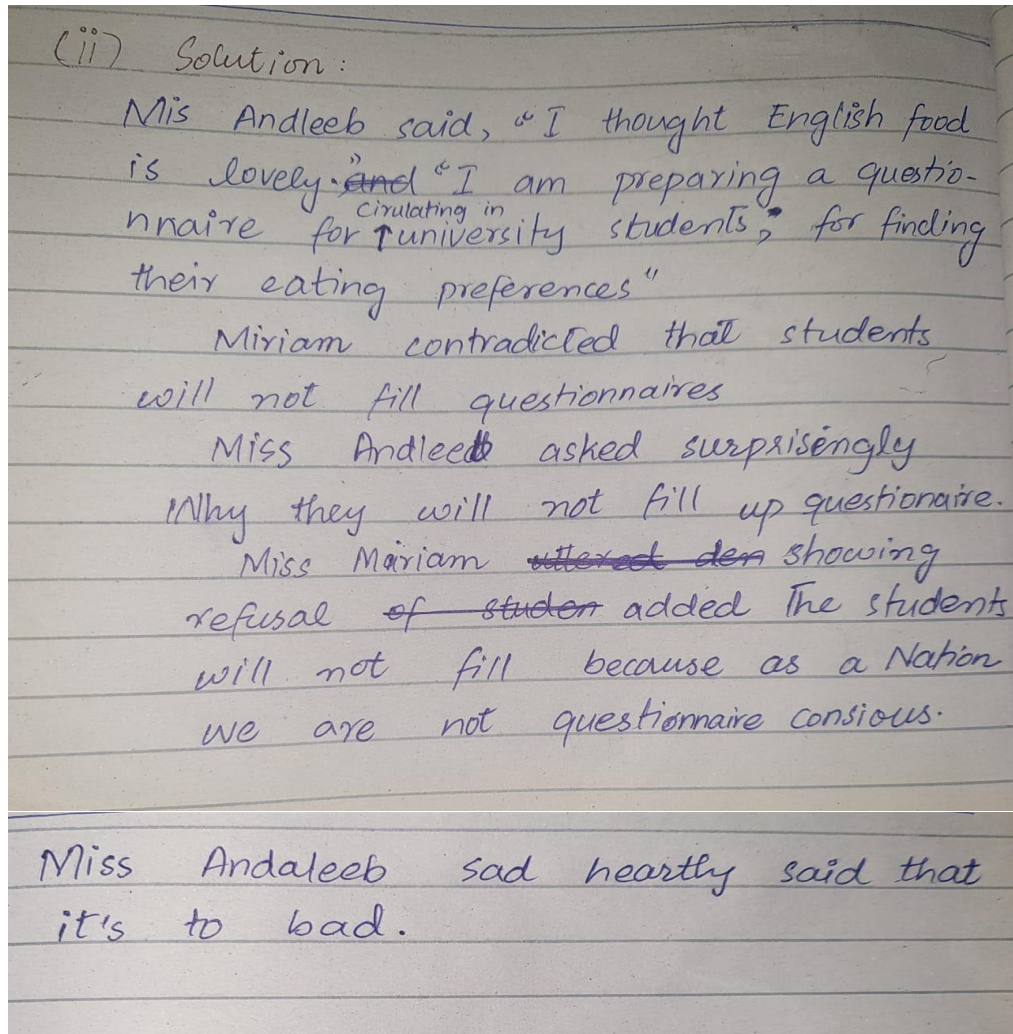 (ii) Solution:
Mis Andleeb said, "I thought English food
is lovely." and "I am preparing a questio-
Cirulating in
nnaire for university students, for finding
their eating preferences"
Miriam contradicted that students
will not fill questionnaires
Miss Andleeb asked surprisingly
Why they will not fill up questionaire.
Miss Mariam uttered den showing
refusal of studen added The students
will not fill because as a Nation
we are not questionnaire consious.
Miss Andaleeb sad hearthy said that
it's to bad.